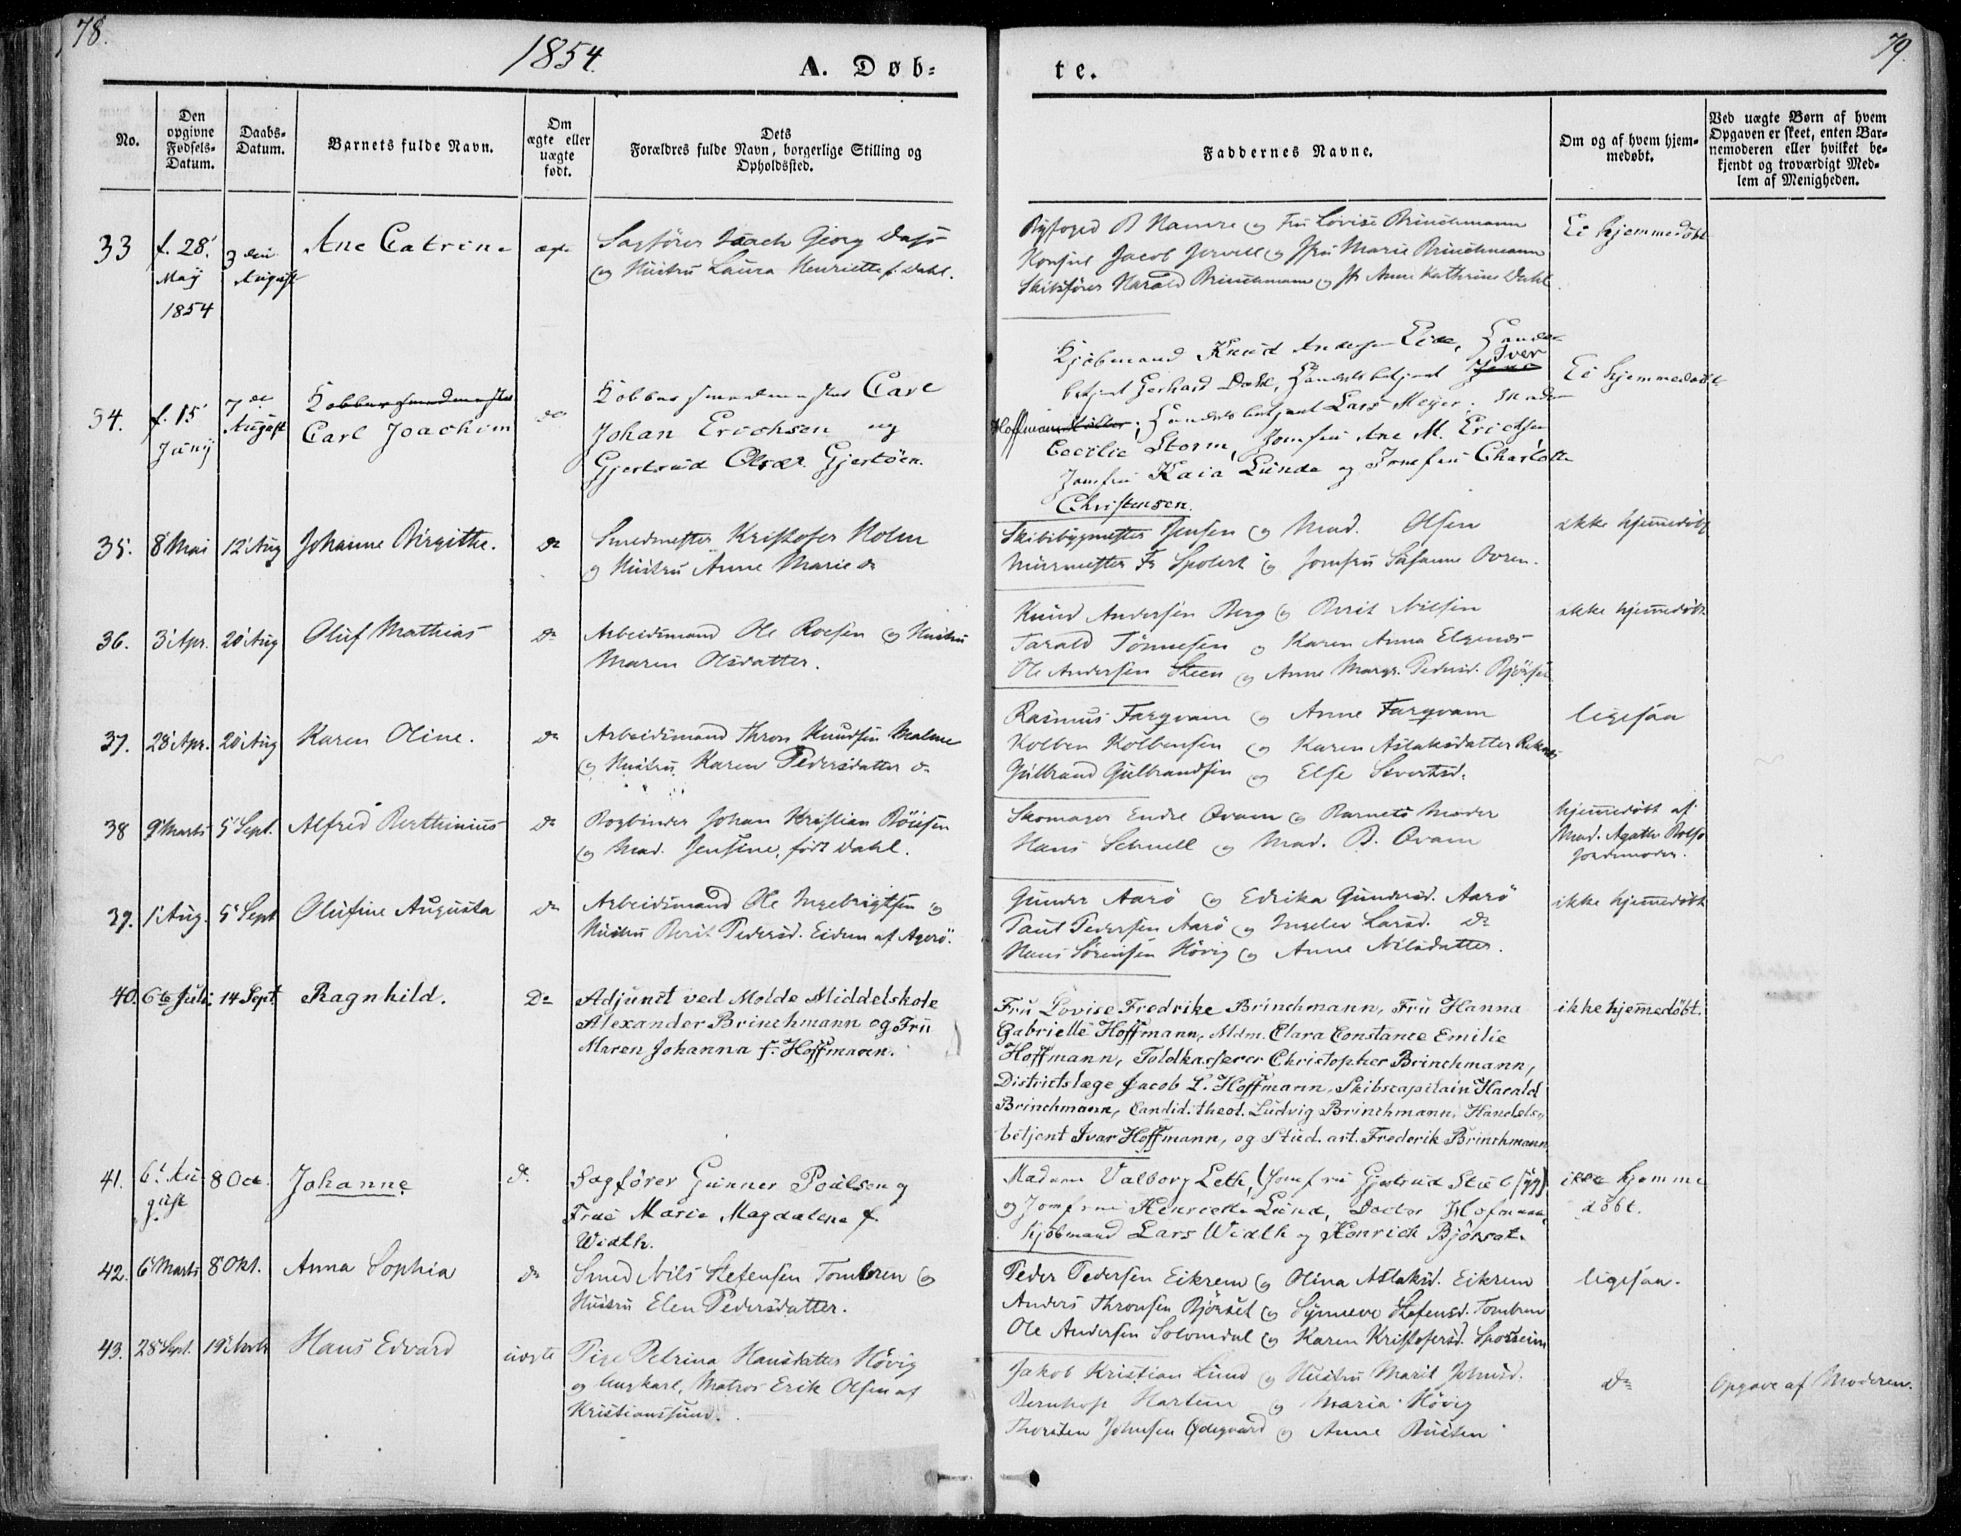 78.
1854.
A. Døb-
te.
79.
No.
Den opgivne Fødsels-Datum.
Daabs-Datum.
Barnets fulde Navn.
Om ægte eller uægte født.
Dets
Forældres fulde Navn, borgerlige Stilling og Opholdssted.
Faddernes Navne.
Om og af hvem hjem-medøbt.
Ved uægte Børn af hvem
Opgaven er skeet, enten Bar-
nemoderen eller hvilket be-
kjendt og troværdigt Med-
lem af Menigheden.
33 f. 28' May 1854
3 die August
Ane Catrine
ægte
Sagfører Isach Georg Dass
og Hustru Laura Henriette f. Dahl.
Byfoged B Hamre og Fru Lovise Brinchmann
Konsul Jacob Jervell og Jfru Marie Brinchmann
Skibsfører Harald Brinchmann og Jfr Anne Kathrine Dahl
Ei hjemmedøbt
34. f. 15' Juny
7 de August
Kobbersmedmester
Carl Joachim
do
Kobbersmedmester Carl
Johan Erichsen og
Gjertrud Olsdr. Gjertøen.
Kjøbmand Knud Andersen Eide, Handels
betjent Gerhard Dahl, Handelsbetjent Iver
Hoffmann, Handelsbetjent Lars Meyer, Madam
Cecilie Storm, Jomfru Ane M. Erichsen
Jomfru Kaia Lunde og Jomfru Charlotte
Christensen.
Ei hjemmedøbt
35. 8 Mai 12' Aug Johanne Birgithe. do
Smedmester Kristofer Holm
og Hustru Anne Marie do
Skibsbygmester Jensen og Mad. Olsen
Muurmester Fr Spolert og Jomfru Susanne Ovren.
ikke hjemmedøbt
36. 3' Apr. 20' Aug Oluf Mathias do
Arbeidsmand Ole Roesen og Hustru
Maren Olsdatter.
Knud Andersen Berg og Berit Nilsen
Tarald Tønnesen og Karen Anna Elgenes
Ole Andersen Steen og Anne Margr. Pedersd. Bjørset
ikke hjemmedøbt
37. 28' Apr. 20' Aug Karen Oline. do
Arbeidsmand Thron Knudsen Malme
og Hustru Karen Pedersdatter do
Rasmus Fargvam og Anne Fargvam
Kolben Kolbensen og Karen Aslaksdatter Reknes
Gulbrand Gulbrandsen og Else Sivertsd.
ligesaa
38 9' Marts 5' Sept. Alfred Berthinius do
Bogbinder Johan Kristian Böisen
og Mad. Jensine, født Dahl.
Skomager Endre Qvam og Barnets Moder
Hans Schnell og Mad. B. Qvam
hjemmedøbt af
Mad. Agathe Rolfs
Jordmoder.
39. 1' Aug. 5' Sept Olufine Augusta do
Arbeidsmand Ole Ingebrigtsen og
Hustru Berit Pedersd. Eidem af Agerø.
Gunder Aarø og Edrika Gundersd. Aarø
Paul Pedersen Aarø og Ingelev Larsd. do
Hans Sørensen Høvig og Anne Nilsdatter.
ikke hjemmedøbt
40. 6te Juli. 14 Sept. Ragnhild. Do
Adjunct ved Molde Middelskole
Alexander Brinchmann og Fru
Maren Johanna f. Hoffmann.
Fru Lovise Fredrike Brinchmann, Fru Hanna
Gabrielle Hoffmann, Mdm. Clara Constance Emilie
Hoffmann, Toldkasserer Christopher Brinchmann,
Districtslæge Jacob L. Hoffmann, Skibscapitain Harald
Brinchmann, Candid. theol. Ludvig Brinchmann, Handels-
betjent Ivar Hoffmann, og Stud. art. Frederik Brinchmann
ikke hjemmedøbt.
41. 6' August 8 Oct. Johanne do
Sagfører Gunner Poulsen og
Frue Maria Magdalena f.
Width.
Madam Valborg Leth, Jomfru Gjertrud Stub
og Jomfrue Henriette Lund, Doctor Hofmann,
Kjøbmand Lars Width og Henrich Bjørset
ikke hjemme
døbt.
42. 6' Marts 8 Okt. Anna Sophia do
Smed Nils Stefensen Tombren og
Hustru Elen Pedersdatter.
Peder Pedersen Eikrem og Olina Aslaksd. Eikrem
Anders Thronsen Bjørset og Synneve Stefensd. Tombren
Ole Andersen Solomdal og Karen Kristofersd. Sporseim
ligesaa.
43. 28' Sept. 19' Hans Edvard uægte
Pige Petrina Hansdatter Høvig
og Ungkarl, Matros Erik Olsen af
Kristianssund.
Jakob Kristian Lund og Hustru Marit Johnsd.
Bernhof Hartum og Maria Høvig
Thorsten Johnsen Ødegaard og Anne Busten
do
Opgave af Moderen.